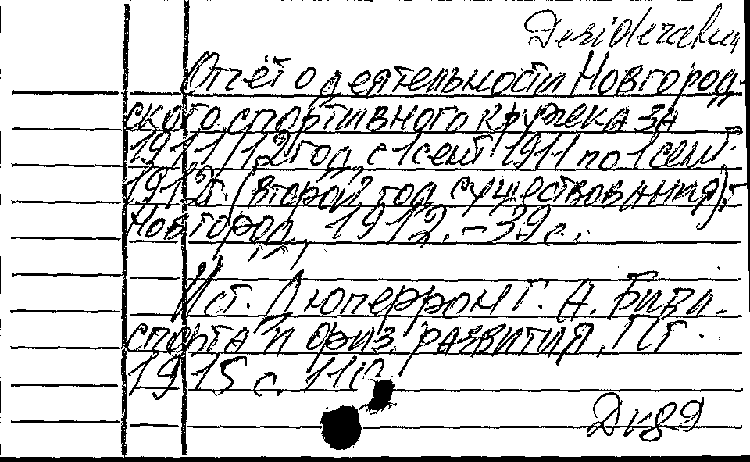 Desiderata
Отчёт о деятельности Новгород-
ского спортивного кружка за
1911/12 год, с 1 сент. 1911 по 1 сент.
1912 г. (второй год существования).-
Новгород, 1912.-39 с.
Ист. Дюперрон Г. А. Библ.
спорта и физ. развития, Пг.
1915 с. 110
Дк89